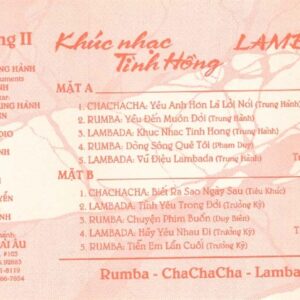 ng II
Khúc nhạc
Tinh Hồng
LAMB
MẶT A
1. CHACHACHA: Yêu Anh Hơn Là Lời Nói (Trung Hành)
2. RUMBA: Yêu Đến Muôn Đời (Trung Hành)
3. LAMBADA: Khuc Nhac Tinh Hong (Trung Hành)
4. RUMBA: Dòng Sông Quê Tôi (Phạm Duy)
5. LAMBADA: Vũ Điệu Lambada (Trung Hành)
MẶT B
1. CHACHACHA: Biết Ra Sao Ngày Sau (Tiêu Khúc)
2. LAMBADA: Tình Yêu Trong Đời (Trường Kỳ)
3. RUMBA: Chuyện Phim Buồn (Duy Biên)
4. LAMBADA: Hãy Yêu Nhau Đi (Trường Kỳ)
5. RUMBA: Tiễn Em Lần Cuối (Trường Kỳ)
Rumba - ChaChaCha - Lamba
NG HÀNH
uments
HÀNH
tar
NG HÀNH
DIO
YỂN
ẢI ÂU
#103
92683
1-8119
66-7654